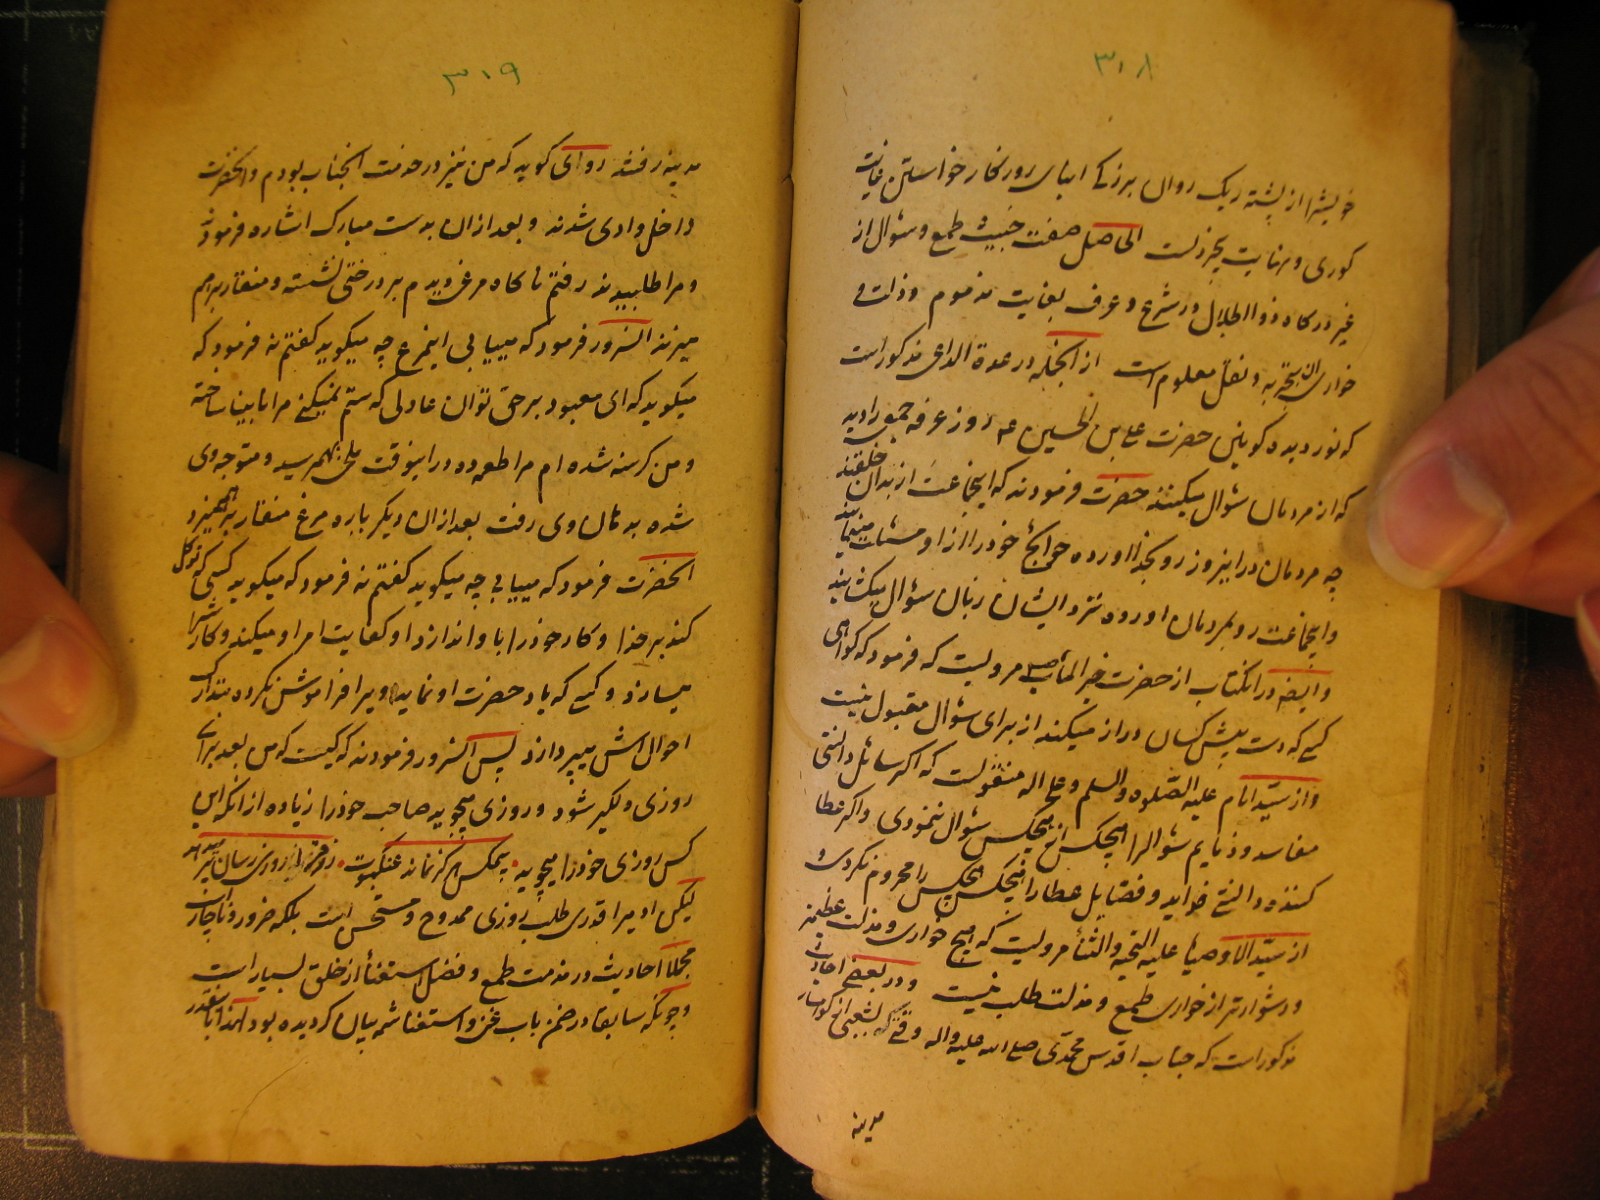 ۳۰۸
خویشرا از پشته ریک روان برزکی ابنای روزکار خواستن غایت
کوری و نهایت بیخردیست الحاصل صفت خبیث طمع و سؤال از
غیر درکاه ذوالجلال در شرع و عرف بغایت مذموم و ذلت و
خواری ان بتجربه و نقل معلوم است از انجمله در عدة الداعی مذکور است
که نور دیده کونین حضرت علی بن الحسین ع روز عرفه جمعی را دید
که از مردمان سؤال میکنند حضرت فرمودند که اینجماعت از بدان خلقند
چه مردمان در اینروز رو بخدا اورده حوائج خود را از او مسئلت مینمایند
و اینجماعت رو بمردمان اورده نزد ایشان زبان سؤال میکشایند
و ایضا در انکتاب از حضرت خیر المآب ص مرویست که فرمود که کواهی
کسی که دست پیش کسان دراز میکند از برای سؤال مقبول نیست
و از سید انام علیه الصلوه والسلم و علی اله منقولست که اکر سائل دانستی
مفاسد و ذمایم سؤالرا هیچکس از هیچکس سؤال ننمودی و اکر عطا
کننده دانستی فواید و فضایل عطا را هیچکس هیچکس را محروم نکردی و
از سید الاوصیا علیه التحیه والثنا مرویست که هیچ خواری و مذلت عظیمتر
و دشوارتر از خواری طمع و مذلت طلب نیست و در بعضی احادیث
مذکور است که جناب اقدس محمدی صلی الله علیه واله وقتی که بشعبی از کوهسار
مدینه
۳۰۹
مدینه رفتند راوی کوید که من نیز در خدمت انجناب بودم و انحضرت
داخل وادی شدند و بعد از ان بدست مبارک اشاره فرمودند
و مرا طلبیدند رفتم ناکاه مرغی دیدم بر درختی نشسته و منقار بر هم
میزند انسرور فرمود که میابی اینمرغ چه میکوید کفتم نه فرمود که
میکوید که ای معبود برحق توان عادلی که ستم نمیکنی مرا نابینا ساخته
و من کرسنه شده ام مرا طعمه ده در اینوقت ملخی بهم رسید و متوجه وی
شده بدهان وی رفت بعد از ان دیکر باره مرغ منقار بر هم میزد
انحضرت فرمود که میابی چه میکوید کفتم نه فرمود که میکوید کسی که توکل
کند بر خدا و کار خود را با و اندازد او کفایت امر او میکند و کارش را
میسازد و کسی که یاد حضرت او نماید ویرا فراموش نکرده بتدارک
احوالش میپردازد پس انسرور فرمودند که کیست که من بعد برای
روزی دلکیر شود و روزی میجوید صاحب خود را زیاده از انکه این
کس روزی خود را میجوید بیمکس هرکز نماند عنکبوت رزق را روزی رسان پر میدهد
لیکن او میرا قدری طلب روزی ممدوح و مستحسن است بلکه ضرور و ناچار است
مجملا احادیث در مذمت طمع و فضل استغنا از خلق بسیار است
و چونکه سابقا در ضمن باب غنی و استغنا شمه بیان کردیده بود لهذا باینقدر